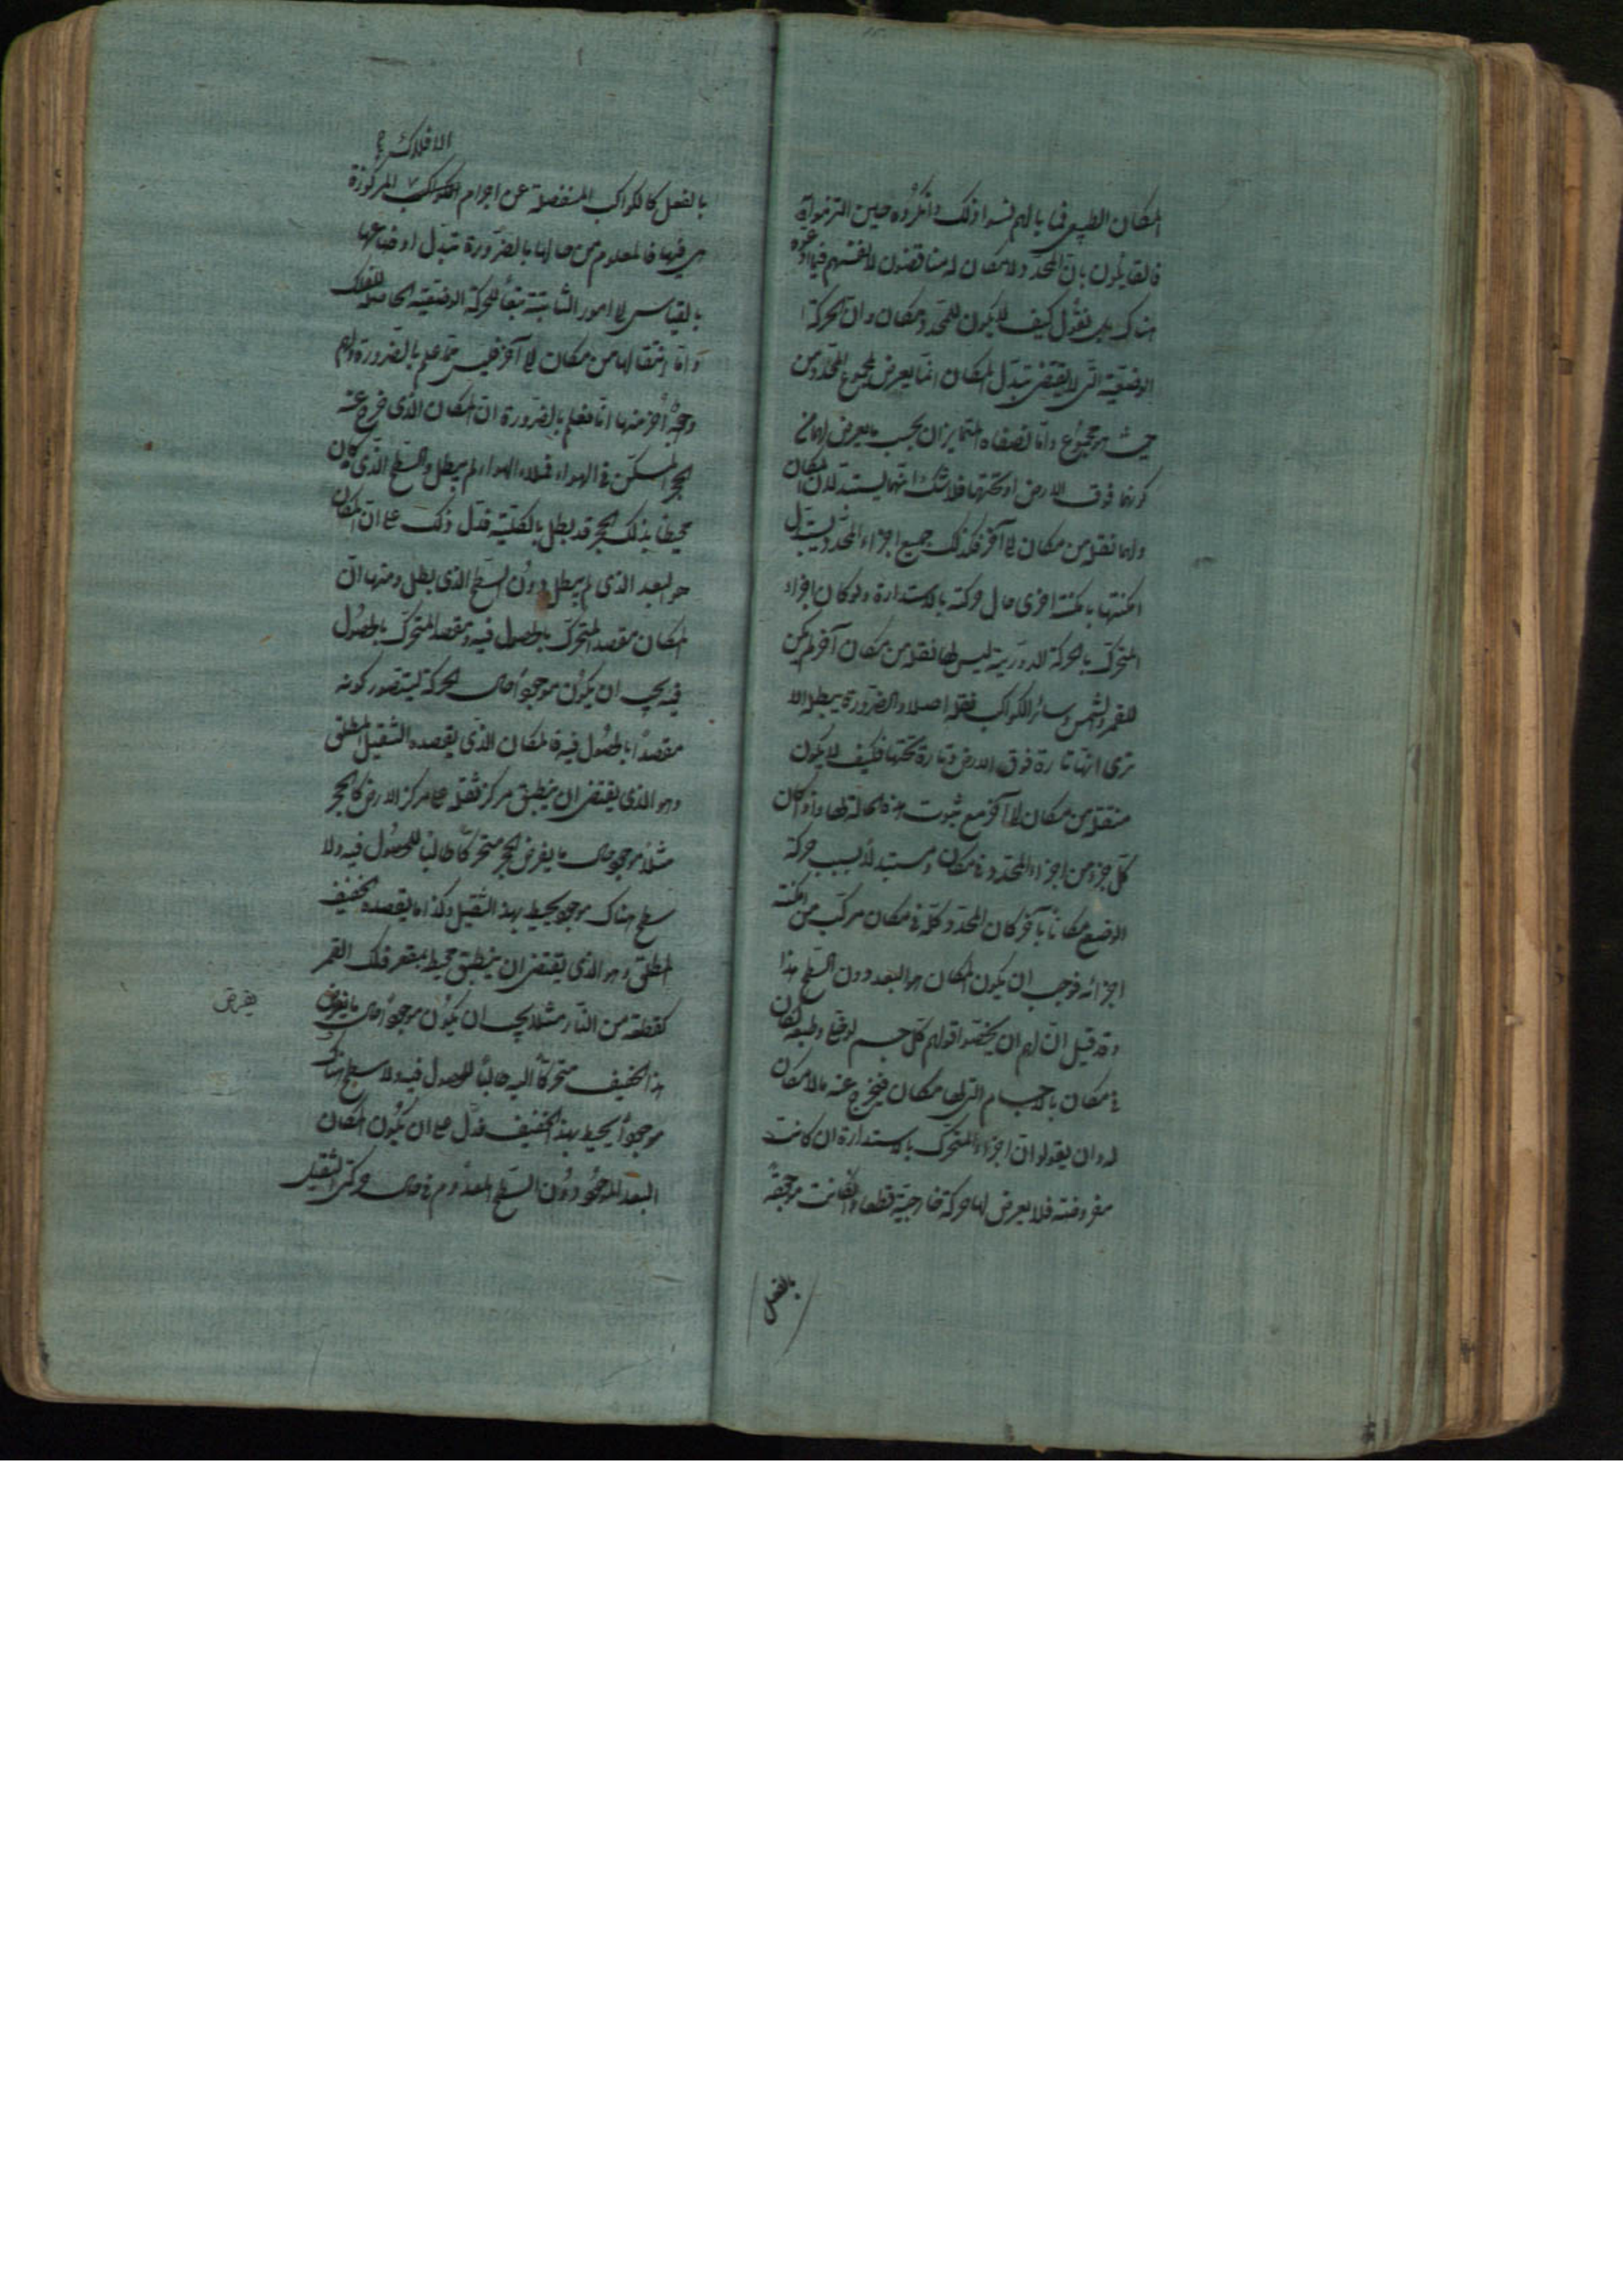 المكان الطبيعي فما بالهم نسوا ذلك وانكروه حين التزموا به
فالقايلون بان المحدد لا مكان له مناقضون لانفسهم فيما ادعوه
هناك بل نقول كيف لا يكون للمحدد مكان وان الحركة
الوضعية التي لا يقتضي تبدل المكان انما يعرض لمجموع المحدد من
حيث هو مجموع واما نصفاه المتمايزان بحسب ما يعرض لهما من
كونهما فوق الارض او تحتها فلا شك انهما يستبدلان المكان
ولهما نقلة من مكان الى آخر فكذلك جميع اجزاء المحدد يستبدل
امكنتها بامكنة اخرى حال حركته بالاستدارة ولو كان اجزاء
المتحرك بالحركة الدورية ليس لها نقلة من مكان آخر لم يكن
للقمر والشمس وسائر الكواكب نقلة اصلا والضرورة يبطله الا
ترى انها تارة فوق الارض وتارة تحتها فكيف لا يكون
منتقلة من مكان الى آخر مع ثبوت هذه الحالة لها واذا كان
كل جزء من اجزاء المحدد في مكان ومستبدلا بسبب حركة
الوضع مكانا بآخر كان المحدد كله في مكان مركب من امكنة
اجزائه فوجب ان يكون المكان هو البعد دون السطح هذا
وقد قيل ان لهم ان يخصوا قولهم كل جسم لو خلي وطبعه لكان
في مكان بالاجسام التي لها مكان فيخرج عنه ما لا مكان
له وان يقولوا ان اجزاء المتحرك بالاستدارة ان كانت
مفروضة فلا يعرض لها حركة خارجية قطعا وان كانت موجودة
بالفعل
الافلاك
بالفعل كالكواكب المنفصلة عن اجرام الكواكب المركوزة
هي فيها فالمعلوم من حالها بالضرورة تبدل اوضاعها
بالقياس الى امور الثابتة تبعا للحركة الوضعية الحاصلة للفلك
واما انتقالها من مكان الى آخر فليس مما علم بالضرورة ولهم
وجوه أخر منها انا نعلم بالضرورة ان المكان الذي خرج عنه
الحجر المسكن في الهواء فملاءه الهواء لم يبطل والسطح الذي كان
محيطا بذلك الحجر قد بطل بالكلية فدل ذلك على ان المكان
هو البعد الذي لم يبطل دون السطح الذي بطل ومنها ان
المكان مقصد المتحرك بالحصول فيه ومقصد المتحرك بالحصول
فيه يجب ان يكون موجودا حال الحركة ليتصور كونه
مقصدا بالحصول فيه فالمكان الذي يقصده الثقيل المطلق
وهو الذي يقتضي ان ينطبق مركز ثقله على مركز الارض كالحجر
مثلا موجود حال ما يفرض الحجر متحركا طالبا للحصول فيه ولا
سطح هناك موجود يحيط بهذا الثقيل وكذا ما يقصده الخفيف
المطلق وهو الذي يقتضي ان ينطبق محيطه بمقعر فلك القمر
كقطعة من النار مثلا يجب ان يكون موجودا حال ما يفرض
هذا الخفيف متحركا اليه طالبا للحصول فيه ولا سطح هناك
موجودا يحيط بهذا الخفيف فدل على ان يكون المكان
البعد الموجود دون السطح المعدوم في حال حركتي الثقيل